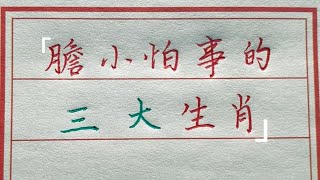 「膽小怕事的
三大生肖」